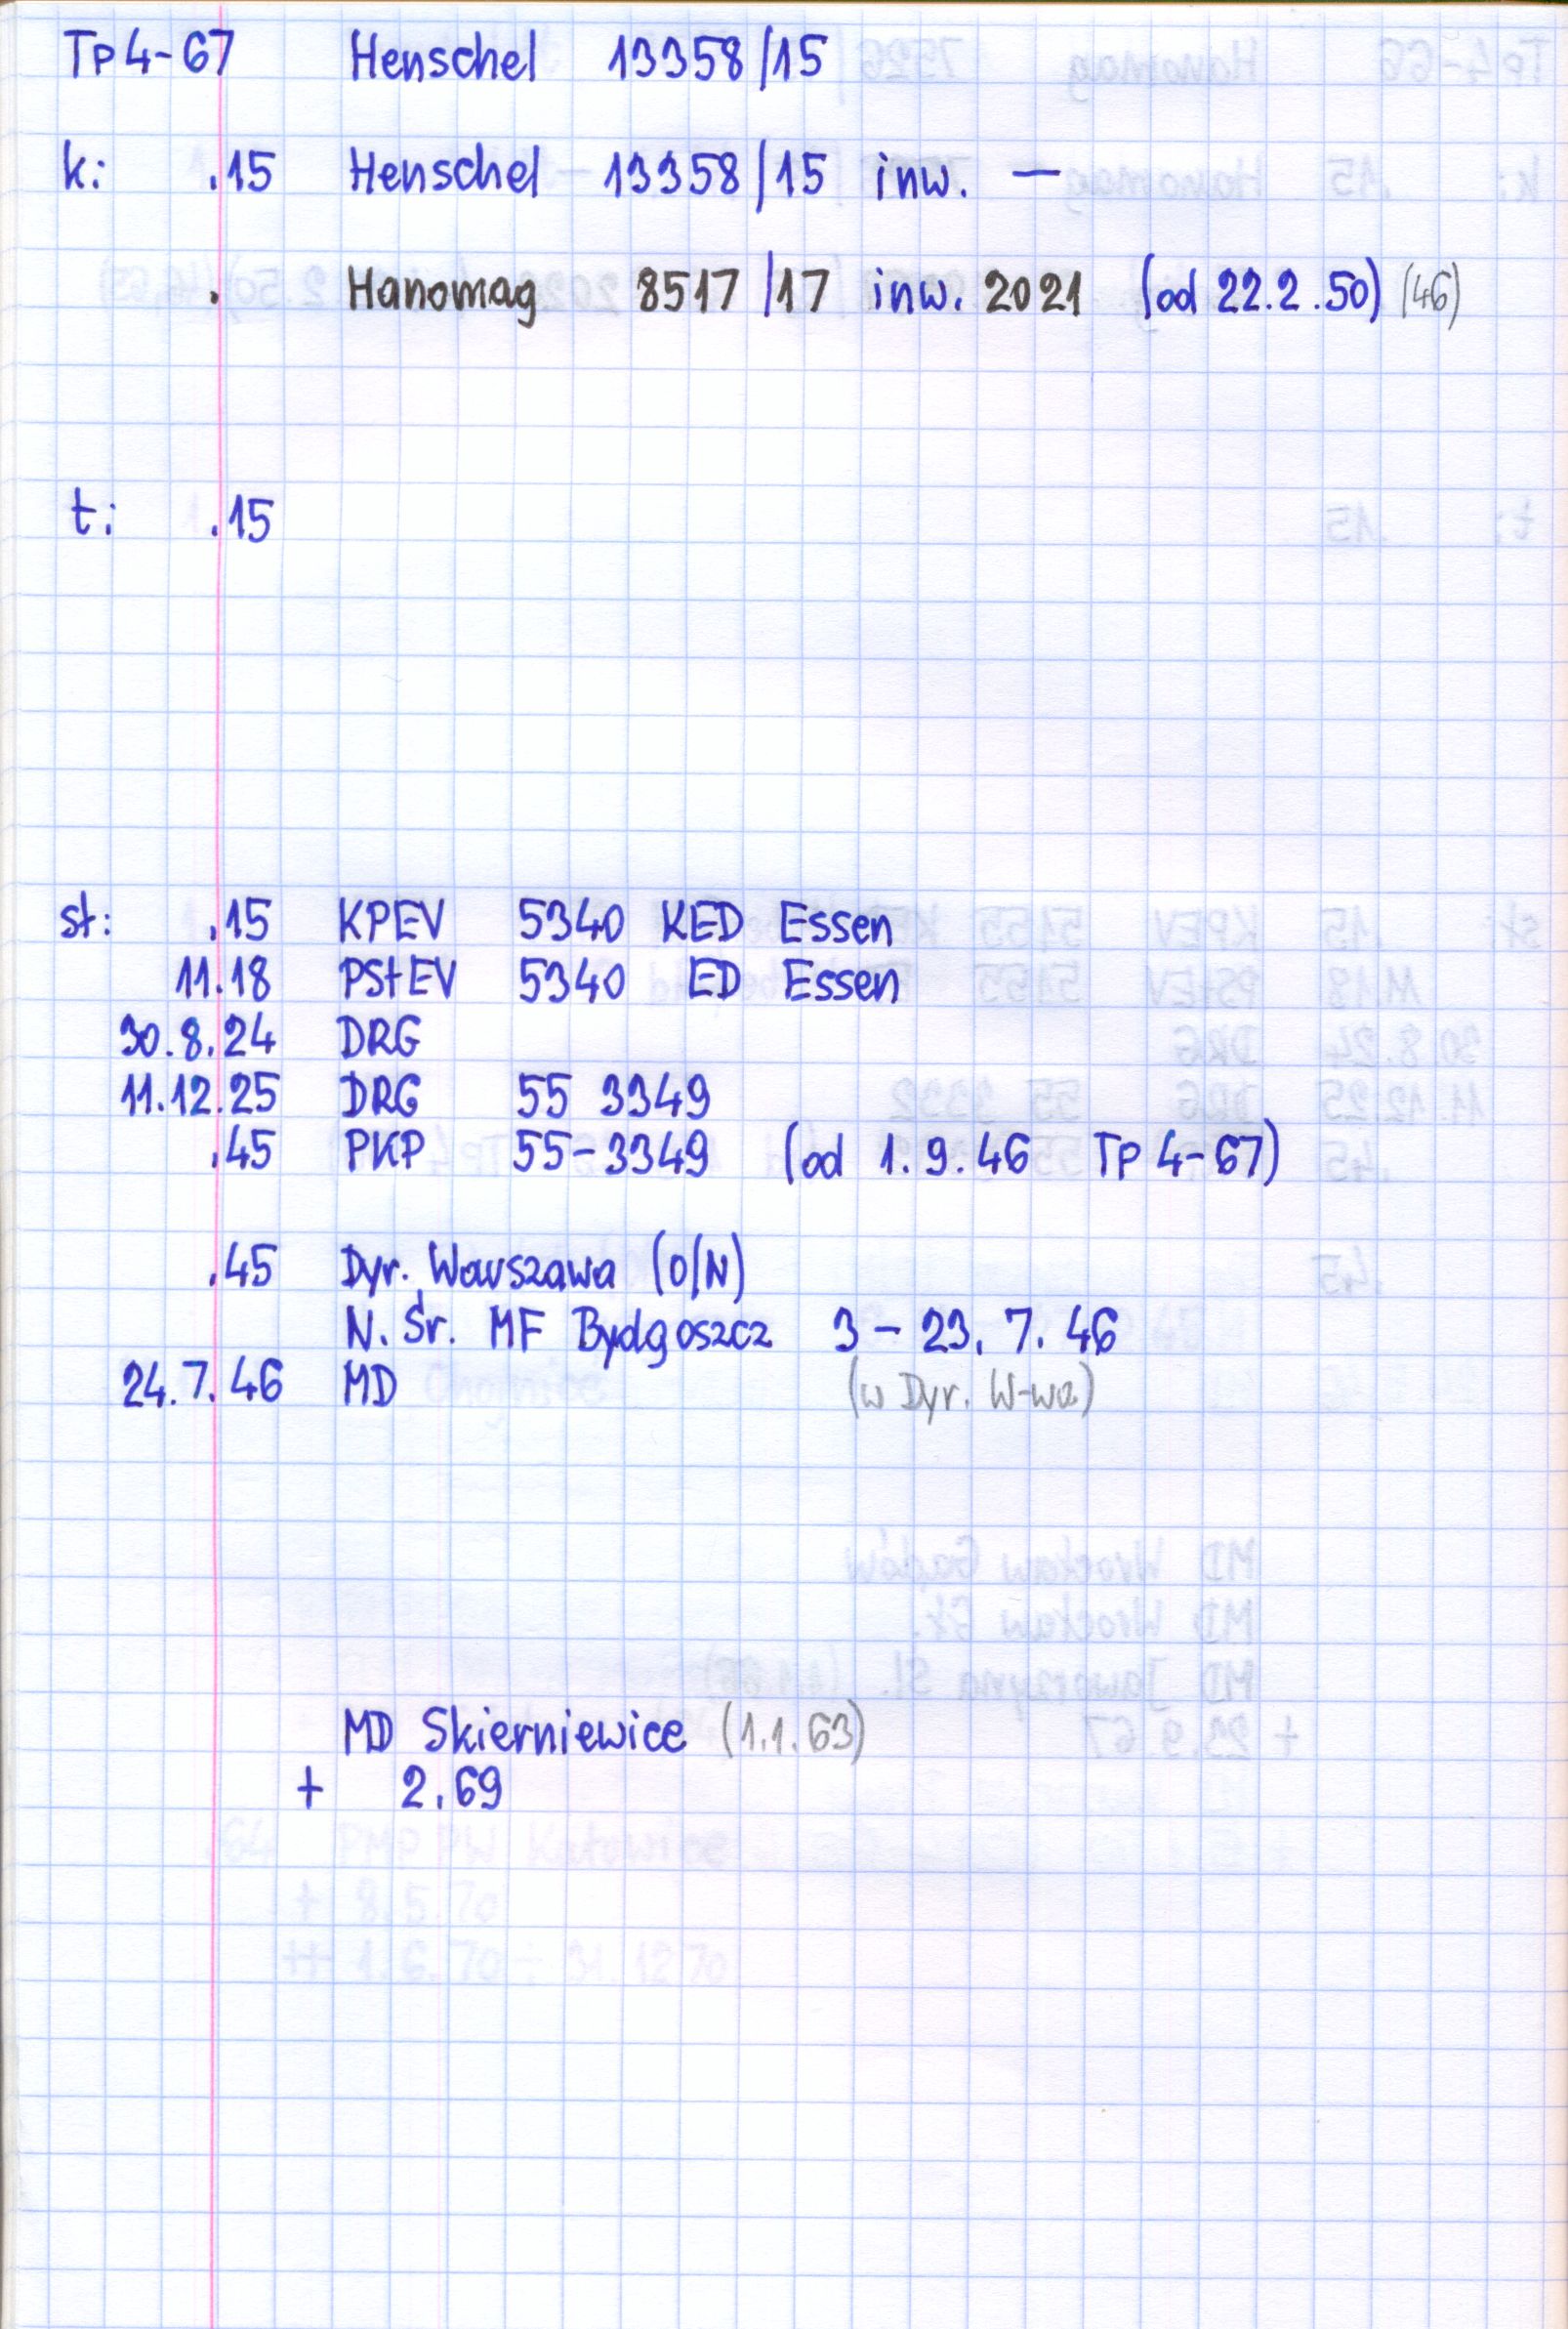 Tp 4-67 Henschel 13358/15
k: .15 Henschel 13358/15 inw. —
. Hanomag 8517/17 inw. 2021 (od 22.2.50) (46)
t: .15
st: .15 KPEV 5340 KED Essen
11.18 PStEV 5340 ED Essen
30.8.24 DRG
11.12.25 DRG 55 3349
.45 PKP 55-3349 (od 1.9.46 Tp 4-67)
.45 Dyr. Warszawa (O/N)
N. Śr. MF Bydgoszcz 3 - 23.7.46
24.7.46 MD (w Dyr. W-wa)
MD Skierniewice (1.1.63)
+ 2.69